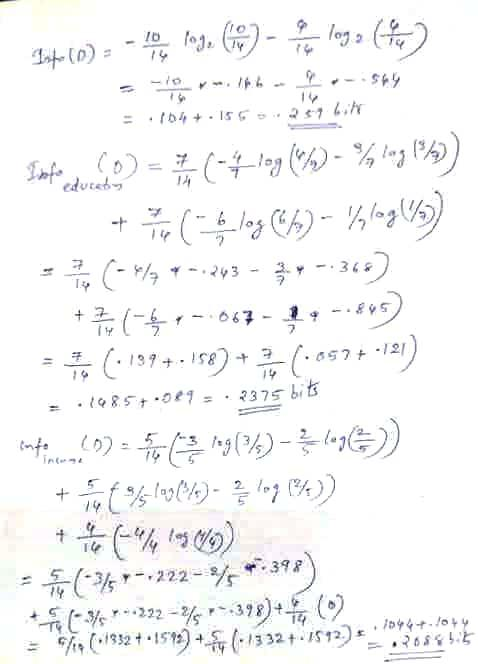 Info(D) = -10/14 log2 (10/14) - 4/14 log2 (4/14)
= -10/14 * -.146 - 4/14 * -.544
= .104 + .155 = .259 bits
Info education (D) = 7/14 (-4/7 log(4/7) - 3/7 log(3/7))
+ 7/14 (-6/7 log(6/7) - 1/7 log(1/7))
= 7/14 (-4/7 * -.243 - 3/7 * -.368)
+ 7/14 (-6/7 * -.067 - 1/7 * -.845)
= 7/14 (.139 + .158) + 7/14 (.057 + .121)
= .1485 + .089 = .2375 bits
Info income (D) = 5/14 (-3/5 log(3/5) - 2/5 log(2/5))
+ 5/14 (3/5 log(3/5) - 2/5 log(2/5))
+ 4/14 (-4/4 log(4/4))
= 5/14 (-3/5 * -.222 - 2/5 * -.398)
+ 5/14 (-3/5 * -.222 - 2/5 * -.398) + 4/14 (0)
= 5/14 (.1332 + .1592) + 5/14 (.1332 + .1592) = .1044 + .1044
= .2088 bits